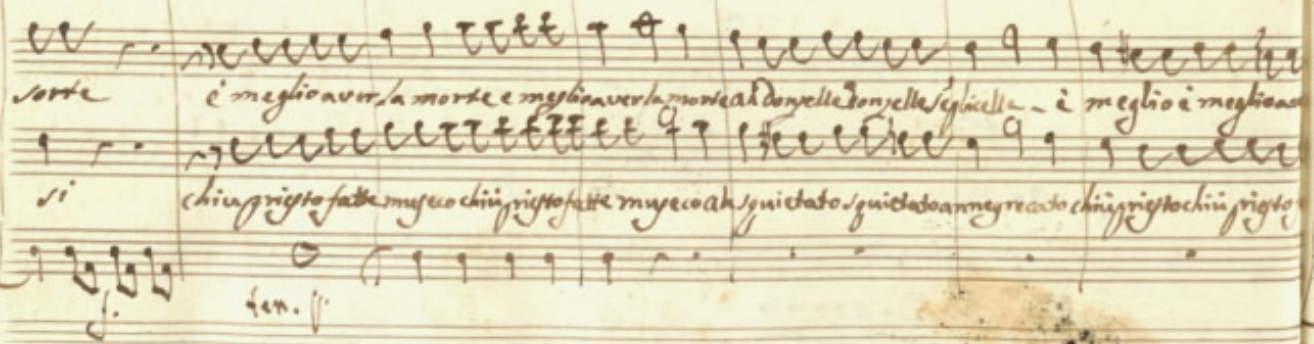 sorte è meglio aver la morte e meglio aver la morte ah donzelle donzelle - è meglio è meglio
si chiu priesto fatte museco chiù priesto fatte museco ah squietato squietato annegrecato chiù priesto chiù priesto
f.
ten. f